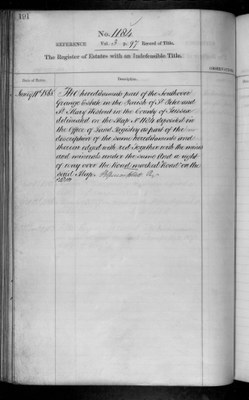 191
No. 1184
REFERENCE Vol. 3 p. 97 Record of Title.
The Register of Estates with an Indefeasible Title.
Date of Entry. Description.
The hereditaments part of the Southover
Grange Estate in the Parish of St Peter and
St Mary Westout in the County of Sussex
delineated on the Map No 1184 deposited in
the Office of Land Registry as part of the
description of the same hereditaments and
thereon edged with red Together with the mines
and minerals under the same And a right
of way over the Road marked "Road" on the
said Map